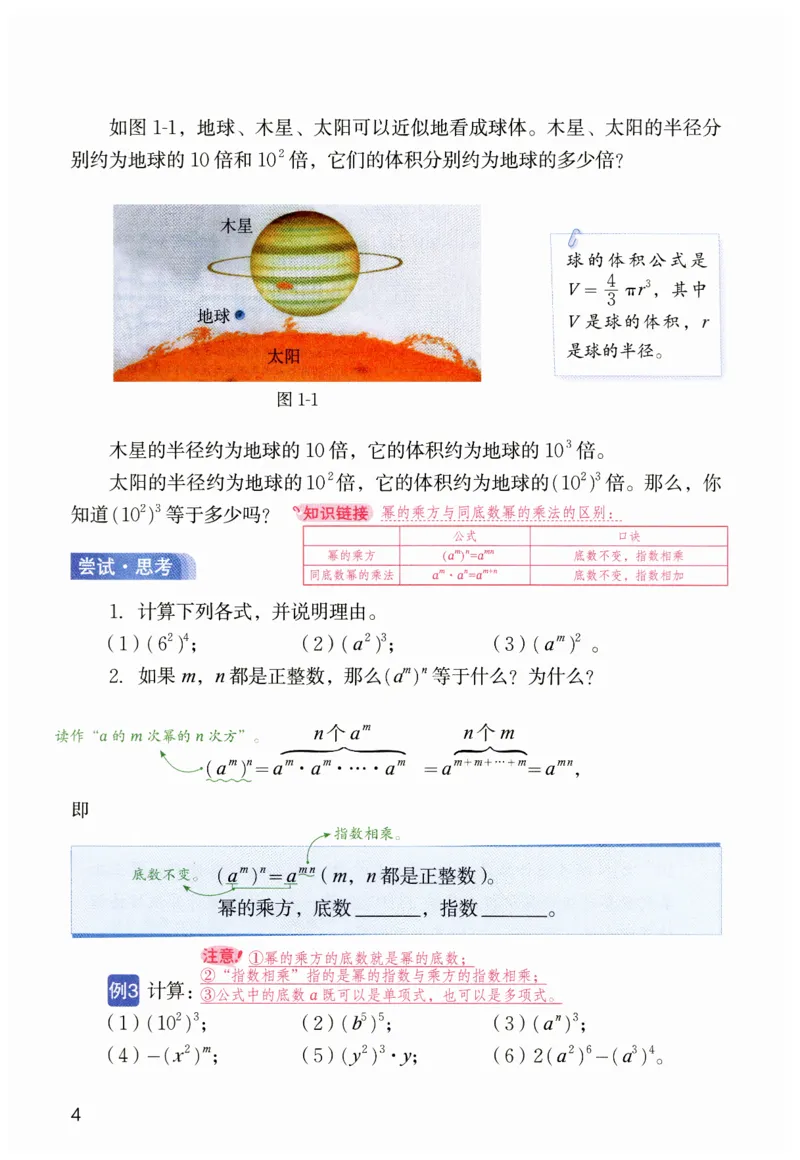 如图 1-1，地球、木星、太阳可以近似地看成球体。木星、太阳的半径分
别约为地球的 10 倍和 10² 倍，它们的体积分别约为地球的多少倍？
木星
地球
太阳
图 1-1
球的体积公式是
V = 4/3 πr³，其中
V 是球的体积，r
是球的半径。
木星的半径约为地球的 10 倍，它的体积约为地球的 10³ 倍。
太阳的半径约为地球的 10² 倍，它的体积约为地球的(10²)³ 倍。那么，你
知道(10²)³ 等于多少吗？
知识链接 幂的乘方与同底数幂的乘法的区别：
公式 口诀
幂的乘方 (aᵐ)ⁿ=aᵐⁿ 底数不变，指数相乘
同底数幂的乘法 aᵐ·aⁿ=aᵐ⁺ⁿ 底数不变，指数相加
尝试·思考
1. 计算下列各式，并说明理由。
(1)(6²)⁴； (2)(a²)³； (3)(aᵐ)² 。
2. 如果 m，n 都是正整数，那么(aᵐ)ⁿ 等于什么？为什么？
读作“a 的 m 次幂的 n 次方”。
n个aᵐ n个m
(aᵐ)ⁿ=aᵐ·aᵐ·…·aᵐ =aᵐ⁺ᵐ⁺…⁺ᵐ=aᵐⁿ，
即
指数相乘。
底数不变。 (aᵐ)ⁿ=aᵐⁿ(m，n都是正整数)。
幂的乘方，底数______，指数______。
注意！ ①幂的乘方的底数就是幂的底数；
②“指数相乘”指的是幂的指数与乘方的指数相乘；
③公式中的底数 a 既可以是单项式，也可以是多项式。
例3 计算：
(1)(10²)³； (2)(b⁵)⁵； (3)(aⁿ)³；
(4)－(x²)ᵐ； (5)(y²)³·y； (6)2(a²)⁶－(a³)⁴。
4